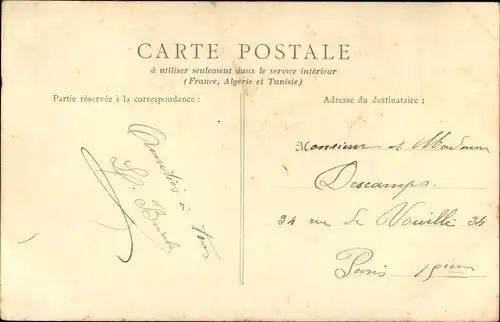 CARTE POSTALE
à utiliser seulement dans le service intérieur
(France, Algérie et Tunisie)
Partie réservée à la correspondance :
Adresse du destinataire :
Amitiés à tous
Monsieur et Madame
Descamps.
34 rue de Vouillé 34
Paris 15ième